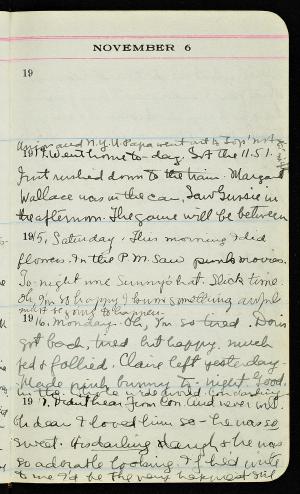 NOVEMBER 6
19
and N.Y.U. Papa went out to
1914. Went home to-day. Got the 11.51.
Just rushed down to the train. Margaret
Wallace was in the car. Saw Gussie in
the afternoon. The game will be between
1915, Saturday. This morning I did
flowers. In the P.M. saw punk movies.
To-night wore Sunny's hat. Slick time.
Oh, I'm so happy I know something awful
must be going to happen.
1916. Monday. Oh, I'm so tired. Doris
got back, tired but happy, much
fed & follied. Claire left yesterday.
Made pink bunny to-night. Good.
in the whole wide world
1917. I don't hear from Con. and never will.
Oh dear I loved him so - he was so
sweet. & he was
so adorable looking. If he'd write
to me I'd be the very happiest girl